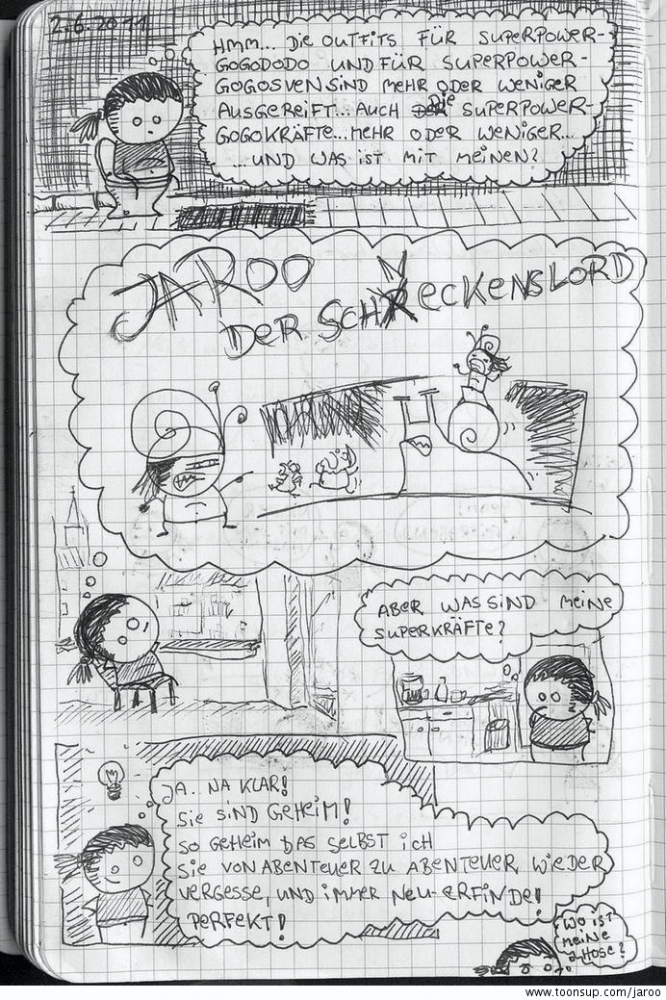 2.6.2011
HMM... DIE OUTFITS FÜR SUPERPOWER-
GOGODODO UND FÜR SUPERPOWER-
GOGOSVEN SIND MEHR ODER WENIGER
AUSGEREIFT... AUCH DIE SUPERPOWER-
GOGOKRÄFTE... MEHR ODER WENIGER...
...UND WAS IST MIT MEINEN?
JAROO
DER SCHNECKENSLORD
ABER WAS SIND MEINE
SUPERKRÄFTE?
JA.. NA KLAR!
SIE SIND GEHEIM!
SO GEHEIM DAS SELBST ICH
SIE VON ABENTEUER ZU ABENTEUER, WIEDER
VERGESSE, UND IMMER NEU-ERFINDE!
PERFEKT!
WO IST
MEINE
HOSE?
www.toonsup.com/jaroo